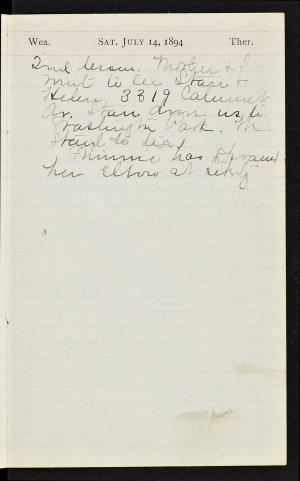 Wea. SAT. JULY 14, 1894 Ther.
2nd lesson. Mother & I
went to see Stan &
Helen, 3319 Calumet
Av. Stan drove us to
Washington Park. We
staid to tea.
Minnie has sprained
her elbow at